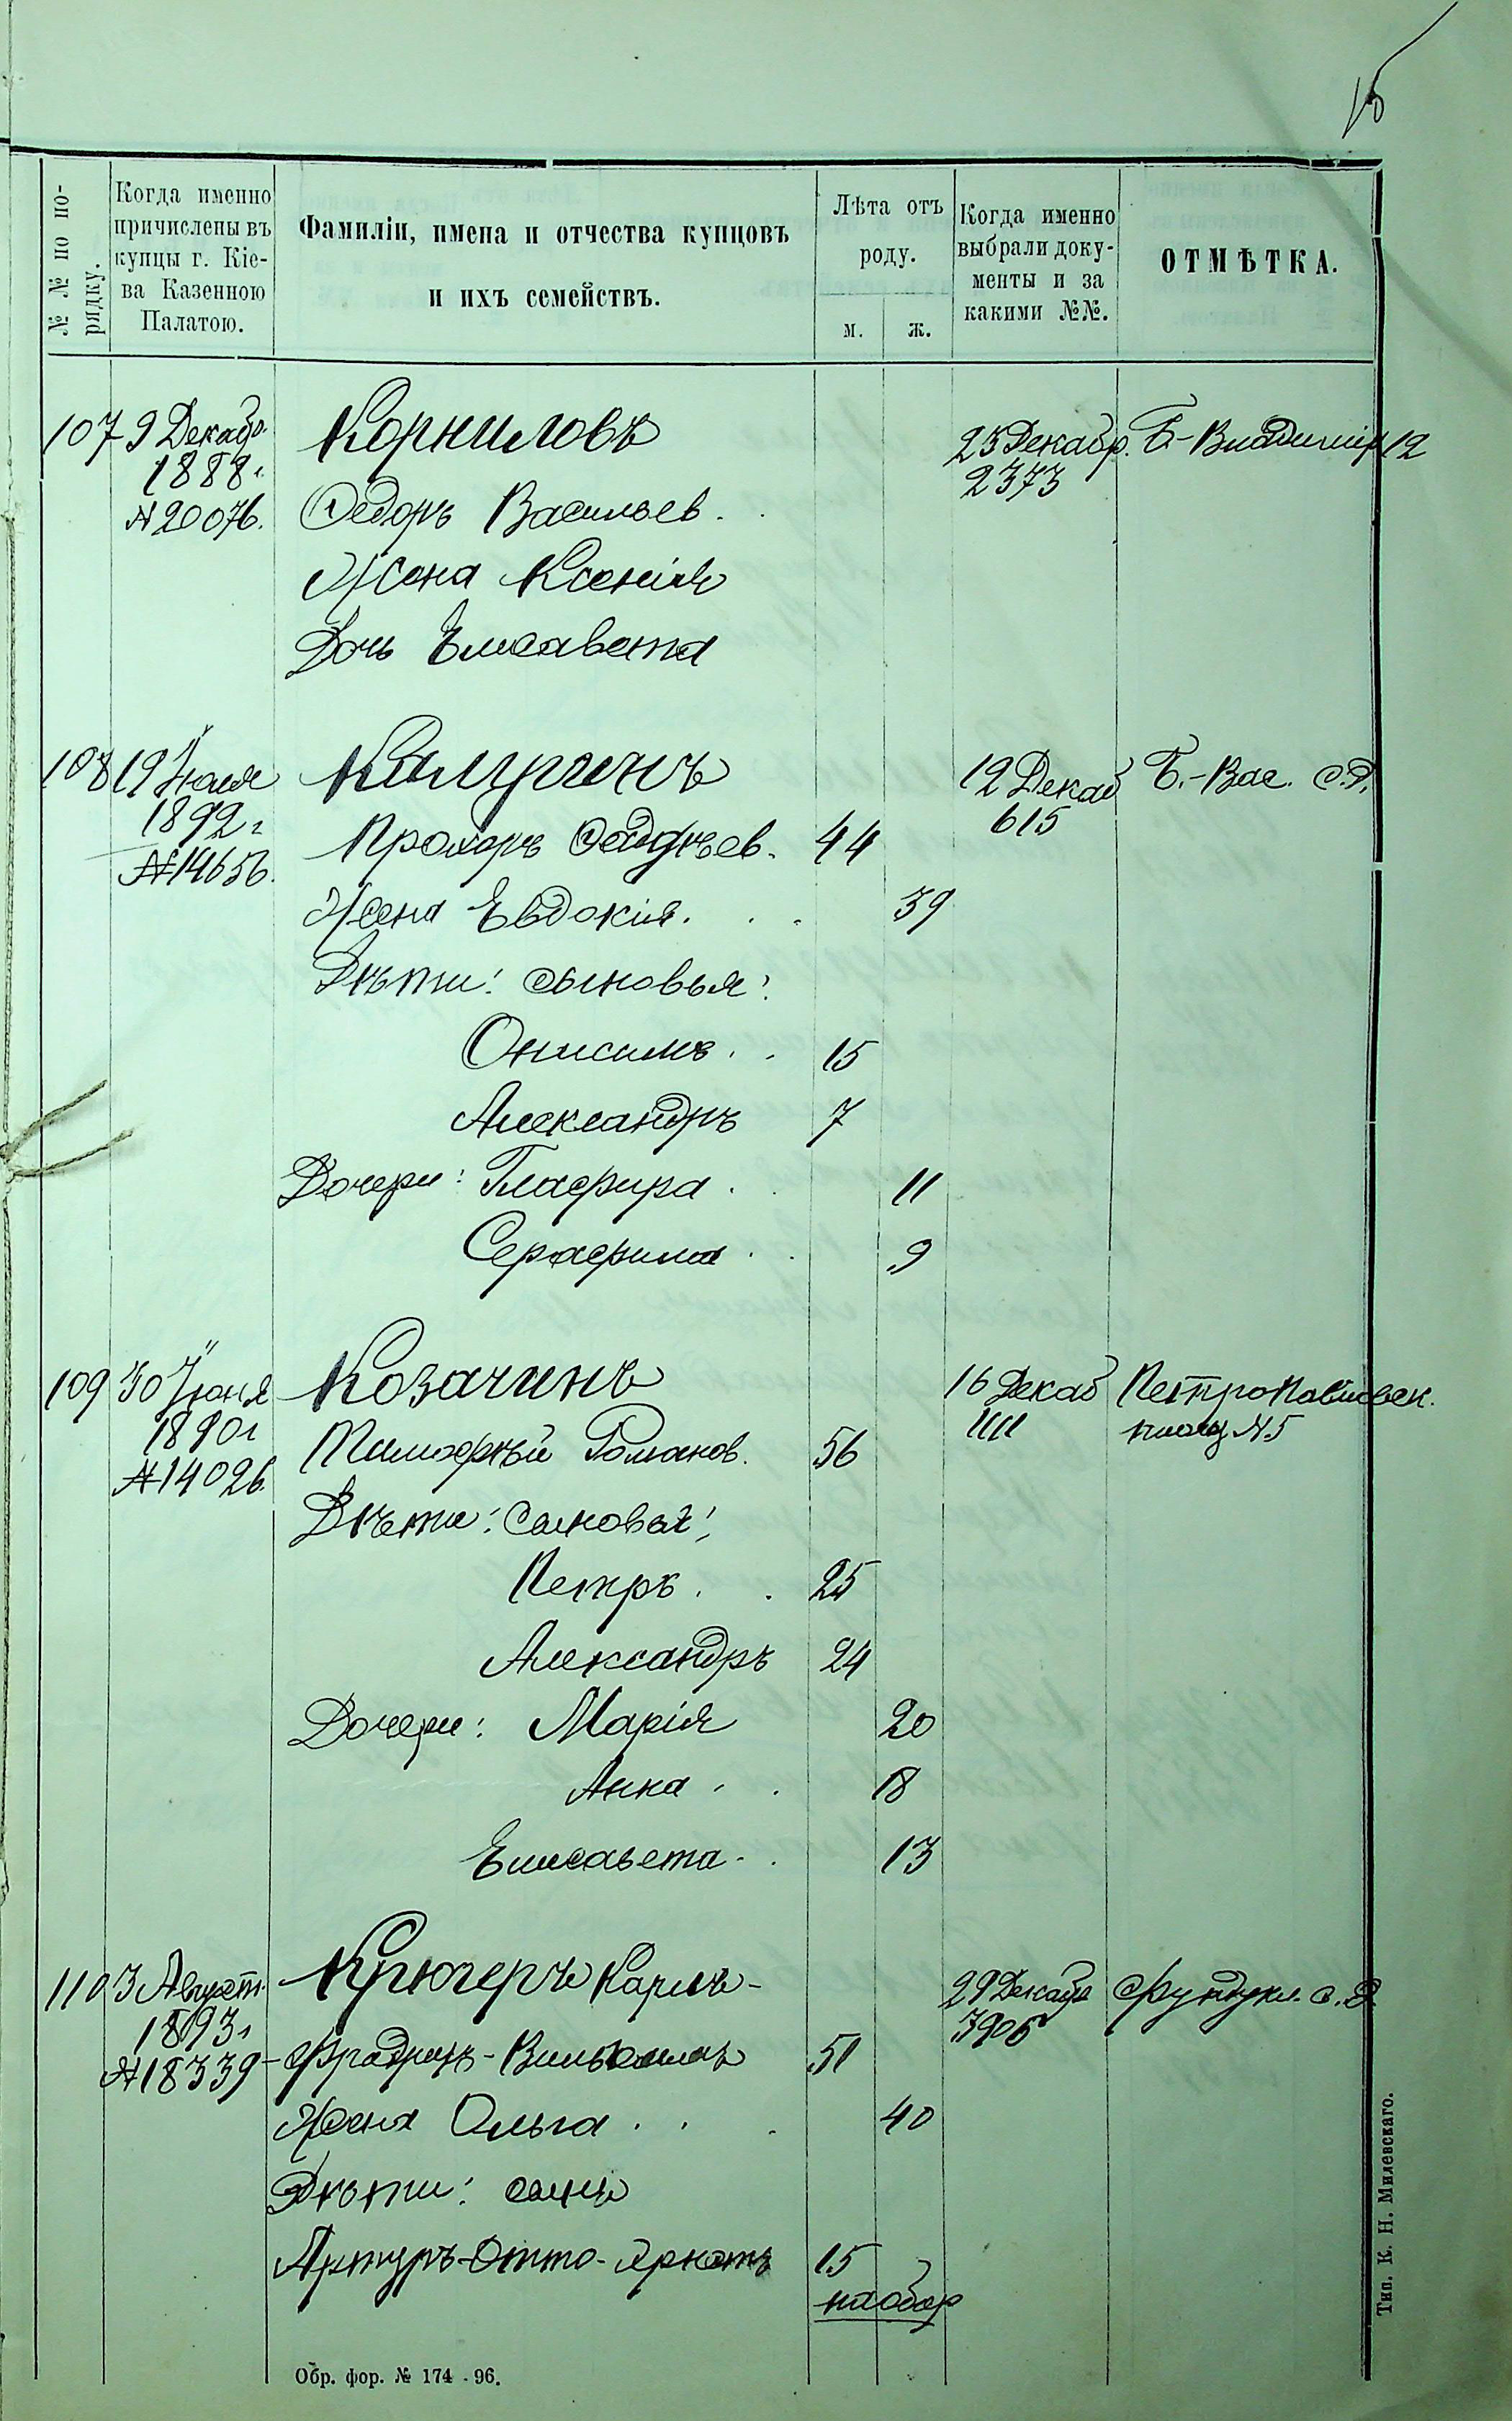 15
№ № по по-
рядку.
Когда именно
причислены въ
купцы г. Кіе-
ва Казенною
Палатою.
Фамиліи, имена и отчества купцовъ
и ихъ семействъ.
Лѣта отъ
роду.
м.
ж.
Когда именно
выбрали доку-
менты и за
какими №№.
ОТМѢТКА.
107 9 Декабр. Корниловъ 25 Декабр. Б-Владимір 12
1888 г. 2373
№ 20076. Федоръ Васильев.
Жена Ксенія
Дочь Елисавета
108 19 Іюля 12 Декаб Б.-Вас. с.д.
1892 г 615
№ 14656. Прохоръ 44
Жена Евдокія. 39
Дѣти: сыновья:
Онисимъ 15
Александръ 7
Дочери: Глафира 11
Серафима 9
109 30 Іюня Козачинъ 16 Декаб Петропавловск.
1890 г 1111 площ № 5
№ 14026. Тимофѣй Романов. 56
Дѣти: Сыновья:
Петръ 25
Александръ 24
Дочери: Марія 20
Анна 18
Елисавета 13
110 3 Август. Крюгеръ Карлъ- 29 Декабр Фундукл. с.д.
1893 г 3905
№ 18339 -Фридрихъ-Вильгельмъ 51
Жена Ольга 40
Дѣти: сынъ
Артуръ-Отто- 15
на обор
Обр. фор. № 174 - 96.
Тип. К. Н. Милевскаго.